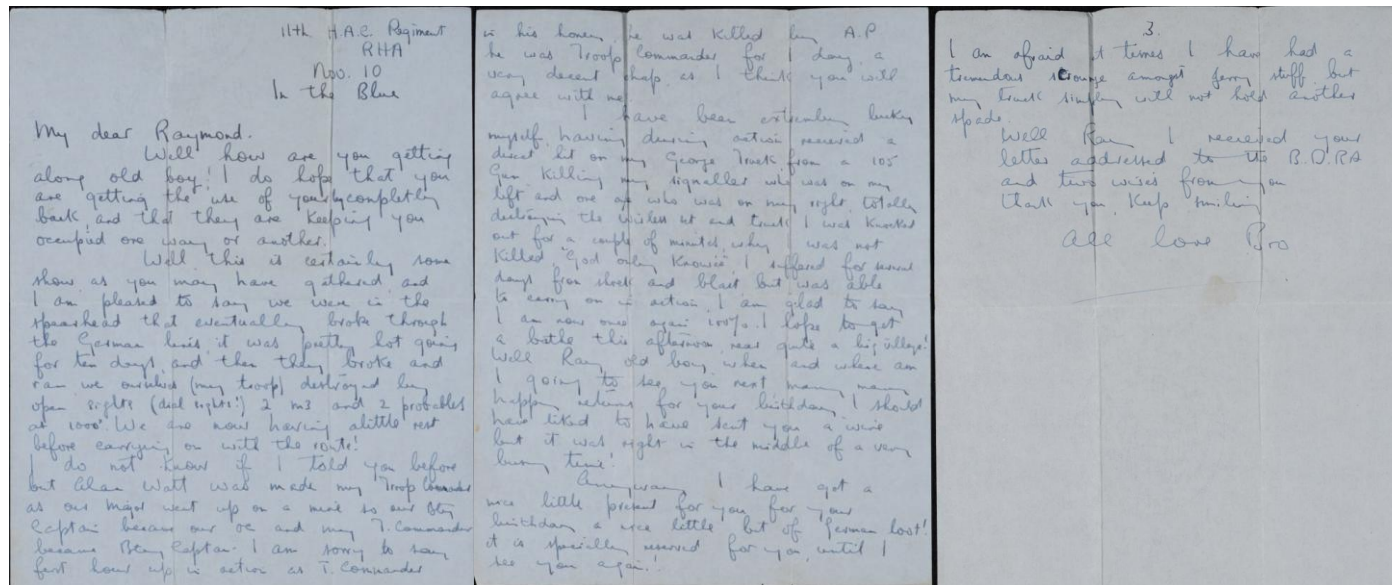 11th H.A.C. Regiment
RHA
Nov. 10
In the Blue
My dear Raymond.
Well how are you getting
along old boy! I do hope that you
are getting the use of your completely
back and that they are keeping you
occupied one way or another.
Well this is certainly some
show as you may have gathered and
I am pleased to say we were in the
spearhead that eventually broke through
the German lines it was pretty hot going
for ten days and then they broke and
ran we ourselves (my troop) destroyed by
open sights (dial sights!) 2 m3 and 2 probables
at 1000ˣ. We are now having alittle rest
before carrying on with the route!
I do not know if I told you before
but Alan Watt was made my Troop Commander
as our Major went up on a mine so our Bty
Captain became our oc and my T. Commander
became Bty Captain. I am sorry to say
first hour up in action as T. Commander
in his honey, he was killed by A.P
he was Troop Commander for 1 day a
very decent chap as I think you will
agree with me.
I have been extremely lucky
myself, having during action received a
direct hit on my George Truck from a 105
Gun killing my signaller who was on my
left and one who was on my right totally
destroying the wireless set and truck I was knocked
out for a couple of minutes, why I was not
killed "God only knows", I suffered for several
days from shock and blast but was able
to carry on in action. I am glad to say
I am now once again 100%. I hope to get
a bathe this afternoon near quite a big village!
Well Ray old boy when and where am
I going to see you next many many
happy returns for your birthday, I should
have liked to have sent you a wire
but it was right in the middle of a very
busy time!
Anyway I have got a
nice little present for you for your
birthday a nice little bit of German loot!
it is specially reserved for you until I
see you again!
3.
I am afraid at times I have had a
tremendous scrounge amongst Jerry stuff but
my truck simply will not hold another
spade.
Well Ray I received your
letter addressed to the B.D.RA
and two wires from you
thank you. Keep smiling
All love Bro